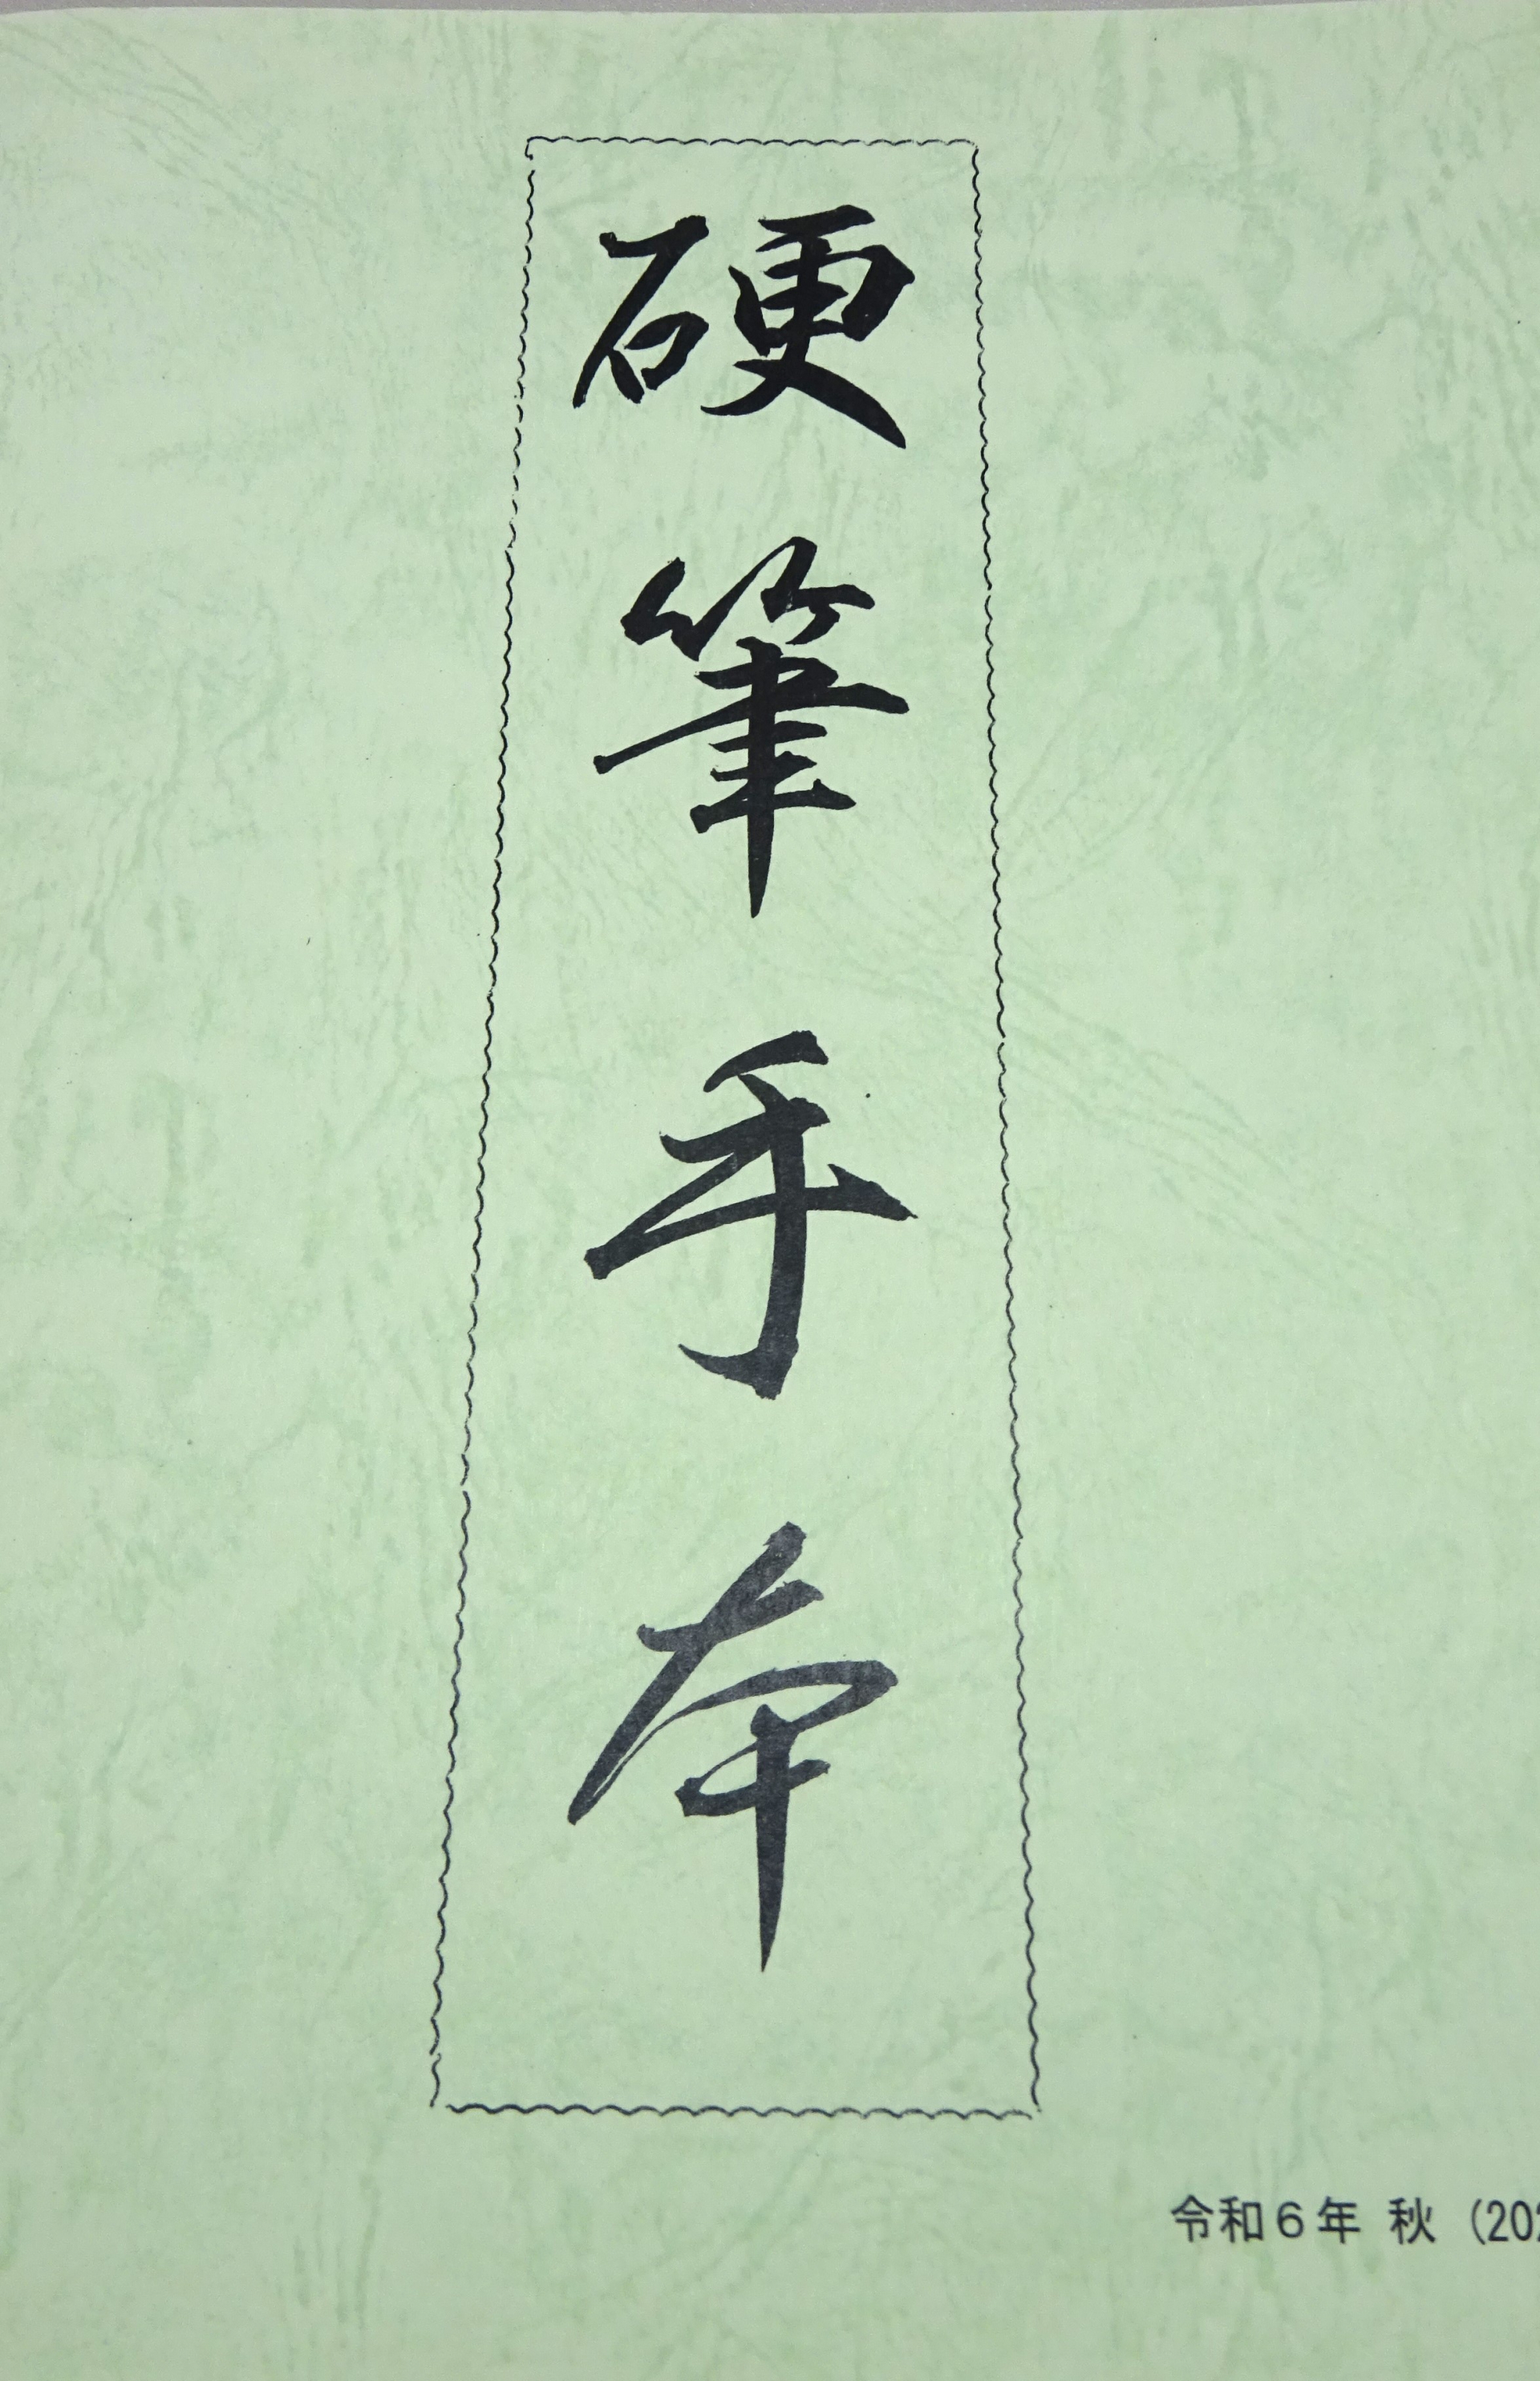 硬筆手本
令和６年 秋（202